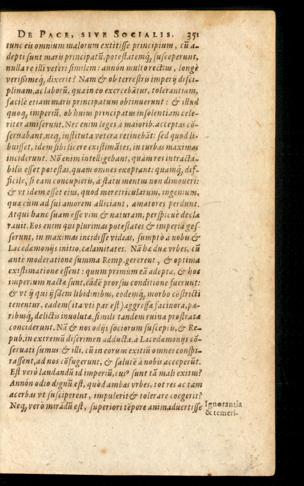 DE PACE, SIVE SOCIALIS. 351
tunc eis omnium malorum extitisse principium, cū a-
depti sunt maris principatū, potestatemq́, susceperunt,
nulla re illi veteri similem: annón multo rectius, longè
verisimeq́, dixerit? Nam & ob terrestris imperij disci-
plinam, ac laborū, qua in eo exercebātur, tolerantiam,
facilè etiam maris principatum obtinuerunt: & illud
quoq, imperiū, ob huius principatus insolentiam cele-
riter amiserunt. Nec enim leges à maioribus acceptas cō-
seruabant, neq, instituta vetera retinebāt: sed quod li-
buisset, idem sibi licere existimātes, in turbas maximas
inciderunt. Nō enim intelligebant, quàm res intracta-
bilis esset potestas, quam omnes exoptant: quàmq́, dif-
ficile, si eam concupieris, à statu mentis non dimoueri:
& vt idem esset eius, quod meretricularum, ingenium,
quæ cùm ad sui amorem alliciant, amatores perdunt.
Atqui hanc suam esse vim & naturam, perspicuè decla
rauit. Eos enim qui plurimas potestates & imperia ges-
serunt, in maximas incidisse videas, sumpto à nobis &
Lacedæmonijs initio, calamitates. Nā hæ duæ vrbes, cū
antè moderatione summa Remp. gererent, & optima
existimatione essent: quum primùm eā adeptæ, & hoc
imperium nactæ sunt, eādē prorsus conditione fuerunt:
& vt ij qui ijsdem libidinibus, eodemq́, morbo cōstricti
tenentur, eadem (ita vti par est) aggressæ facinora, pa-
ribusq́, delictis inuolutæ, simili tandem ruina prostratæ
conciderunt. Nā & nos odijs sociorum susceptis, & Re-
pub. in extremū discrimen adducta, à Lacedæmonijs cō-
seruati sumus & illi, cū in eorum exitiū omnes conspi-
rassent, ad nos cōfugerunt, & salutē à nobis acceperūt.
Est verò laudandū id imperiū, cuiᵒ sunt tā mali exitus?
Annón odio dignū est, quod ambas vrbes, tot res ac tam
acerbas vt susciperent, impulerit & tolerare coegerit?
Neq, verò mirādū est, superiori tēpore animaduertisse
Ignorantia
& temeri-